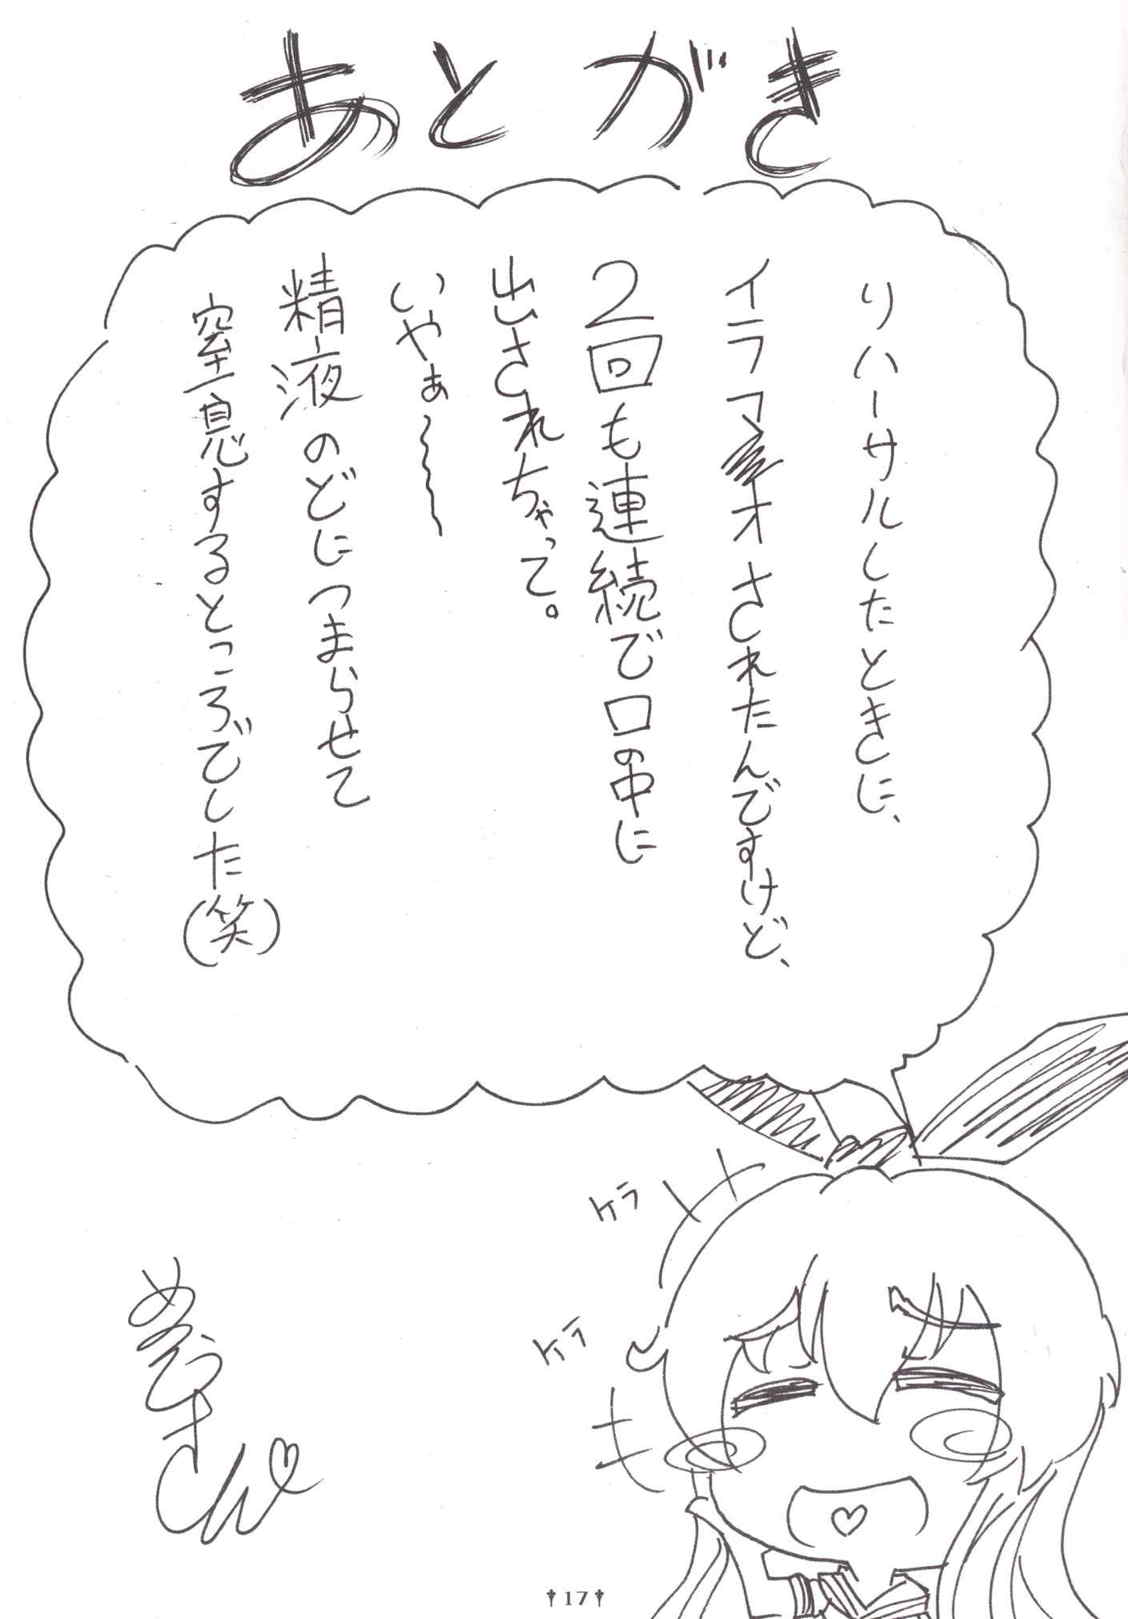 あとがき
リハーサルしたときに、
イラマオされたんですけど、
2回も連続で口の中に
出されちゃって。
いやぁ〜〜
精液のどにつまらせて
窒息するところでした(笑)
ケラ
ケラ
†17†